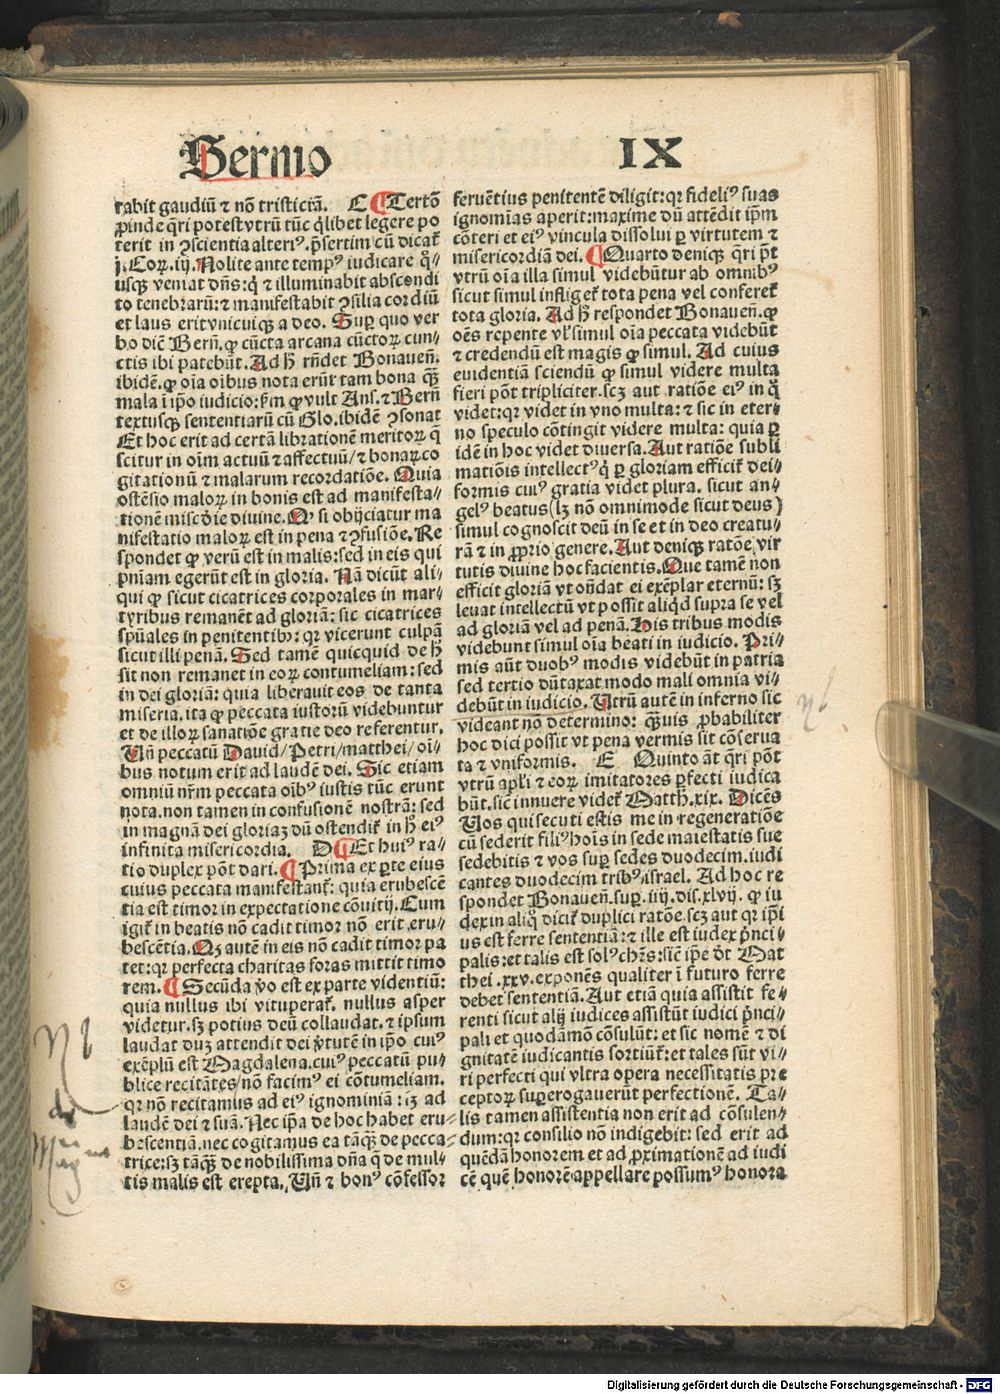 Sermo IX
rabit gaudiū ⁊ nō tristiciā. C ¶ Tertō
ꝓinde q̄ri potest vtrū tūc q̄libet legere po
terit in ꝯscientia alteriꝰ. p̄sertim cū dicat̄
j. Coꝝ. iij. Nolite ante tempꝰ iudicare q̊//
usqꝫ veniat dn̄s: q̄ ⁊ illuminabit abscondi
to tenebrarū: ⁊ manifestabit ꝯsilia cordiū
et laus erit vnicuiqꝫ a deo. Sup̱ quo ver
bo diē Bern̄. ꝙ cūcta arcana cūctoꝝ cun//
ctis ibi patebūt. Ad hͦ rn̄det Bonauen̄.
ibidē. ꝙ oīa oibus nota erūt tam bona qͣꝫ
mala ī ip̄o iudicio: ẜm ꝙ vult Ans. ⁊ Bern̄
textusqꝫ sententiarū cū Glo. ibidē ꝯsonat
Et hoc erit ad certā librationē meritoꝝ q̄
scitur in oīm actuū ⁊ affectuū/ ⁊ bonaꝝ co
gitationū ⁊ malarum recordatiōe. Quia
ostēsio maloꝝ in bonis est ad manifesta//
tionē mīsc̄die diuine. Qͥ si obijciatur ma
nifestatio maloꝝ est in pena ⁊ ꝯfusiōe. Re
spondet ꝙ verū est in malis: sed in eis qui
pn̄iam egerūt est in gloria. Nā dicūt ali//
qui ꝙ sicut cicatrices corporales in mar//
tyribus remanēt ad gloriā: sic cicatrices
spūales in penitentibꝰ: qꝛ vicerunt culpā
sicut illi penā. Sed tamē quicquid de hͦ
sit non remanet in eoꝝ contumeliam: sed
in dei gloriā: quia liberauit eos de tanta
miseria. ita ꝙ peccata iustorū videbuntur
et de illoꝝ sanatiōe gratie deo referentur.
Vn̄ peccatū Dauid/ Petri/ matthei/ oī//
bus notum erit ad laudē dei. Sic etiam
omniū nr̄m peccata oībꝰ iustis tūc erunt
nota. non tamen in confusionē nostrā: sed
in magnā dei gloriaꝫ dū ostendit̄ in hͦ eiꝰ
infinita misericordia. D ¶ Et huiꝰ ra//
tio duplex pōt dari. ¶ Prima ex ꝑte eius
cuius peccata manifestant̄: quia erubescē
tia est timor in expectatione cōuitij. Cum
igit̄ in beatis nō cadit timor nō erit eru//
bescētia. Qꝫ autē in eis nō cadit timor pa
tet: qꝛ perfecta charitas foras mittit timo
rem. ¶ Secūda v̊o est ex parte videntiū:
quia nullus ibi vituperat̄. nullus asper
videtur. sꝫ potius deū collaudat. ⁊ ipsum
laudat duꝫ attendit dei v̓tutē in ip̄o cuiꝰ
exēplū est Magdalena. cuiꝰ peccatū pu//
blice recitātes/ nō facimꝰ ei cōtumeliam.
qꝛ nō recitamus ad eiꝰ ignominiā: iꝫ ad
laudē dei ⁊ suā. Nec ip̄a de hoc habet eru//
bescentiā. nec cogitamus ea tāqͣꝫ de pecca//
trice: sꝫ tāqͣꝫ de nobilissima dn̄a q̄ de mul//
tis malis est erepta. Vn̄ ⁊ bonꝰ cōfessor
feruētius penitentē diligit: qꝛ fideliꝰ suas
ignomias aperit: maxime dū attēdit ip̄m
cōteri et eiꝰ vincula dissolui ꝑ virtutem ⁊
misericordiā dei. ¶ Quarto deniqꝫ q̄ri pōt
vtrū oīa illa simul videbūtur ab omnibꝰ
sicut simul infliget̄ tota pena vel conferet̄
tota gloria. Ad hͦ respondet Bonauen̄. ꝙ
oēs repente vl̓ simul oīa peccata videbūt
⁊ credendū est magis ꝙ simul. Ad cuius
euidentiā sciendū ꝙ simul videre multa
fieri pōt tripliciter. scꝫ aut ratiōe eiꝰ in q̊
videt: qꝛ videt in vno multa: ⁊ sic in eter//
no speculo cōtingit videre multa: quia ꝑ
idē in hoc videt diuersa. Aut ratiōe subli
matiōis intellectꝰ q̇ ꝑ gloriam efficit̄ dei//
formis cuiꝰ gratia videt plura. sicut an//
gelꝰ beatus (lꝫ nō omnimode sicut deus)
simul cognoscit deū in se et in deo creatu//
rā ⁊ in ꝓprio genere. Aut deniqꝫ ratōe vir
tutis diuine hoc facientis. Que tamē non
efficit gloriā vt on̄dat ei exēplar eternū: sꝫ
leuat intellectū vt possit aliq̇d supra se vel
ad gloriā vel ad penā. His tribus modis
videbunt simul oīa beati in iudicio. Pri//
mis aūt duobꝰ modis videbūt in patria
sed tertio dūtaxat modo mali omnia vi//
debūt in iudicio. Vtrū autē in inferno sic
videant nō determino: qͣꝫuis ꝓbabiliter
hoc dici possit vt pena vermis sit cōserua
ta ⁊ vniformis. E Quinto āt q̄ri pōt
vtrū apl̓i ⁊ eoꝝ imitatores ꝑfecti iudica
būt. sic̄ innuere videt̄ Matth. xix. Dicēs
Vos qui secuti estis me in regeneratiōe
cū sederit filiꝰ hoīs in sede maiestatis sue
sedebitis ⁊ vos sup̱ sedes duodecim. iudi
cantes duodecim tribꝰ israel. Ad hoc re
spondet Bonauen̄. sup̱. iiij. dis. xlvij. ꝙ iu
dex in aliq̊ dicit̄ duplici ratōe. scꝫ aut qꝛ ip̄i
us est ferre sententiā: ⁊ ille est iudex p̓nci//
palis: et talis est solꝰ chr̄s: sic̄ ip̄e d̓t Mat
thei. xxv. exponēs qualiter ī futuro ferre
debet sententiā. Aut etiā quia assistit fe//
renti sicut alij iudices assistūt iudici p̓nci//
pali et quodāmō cōsulūt: et sic nomē ⁊ di
gnitatē iudicantis sortiūt̄: et tales sūt vi//
ri perfecti qui vltra opera necessitatis pre
ceptoꝝ suꝑerogauerūt perfectionē. Ta//
lis tamen assistentia non erit ad cōsulen//
dum: qꝛ consilio nō indigebit: sed erit ad
quēdā honorem et ad ꝓximationē ad iudi
cē quē honorē appellare possumꝰ honora
Digitalisierung gefördert durch die Deutsche Forschungsgemeinschaft - DFG